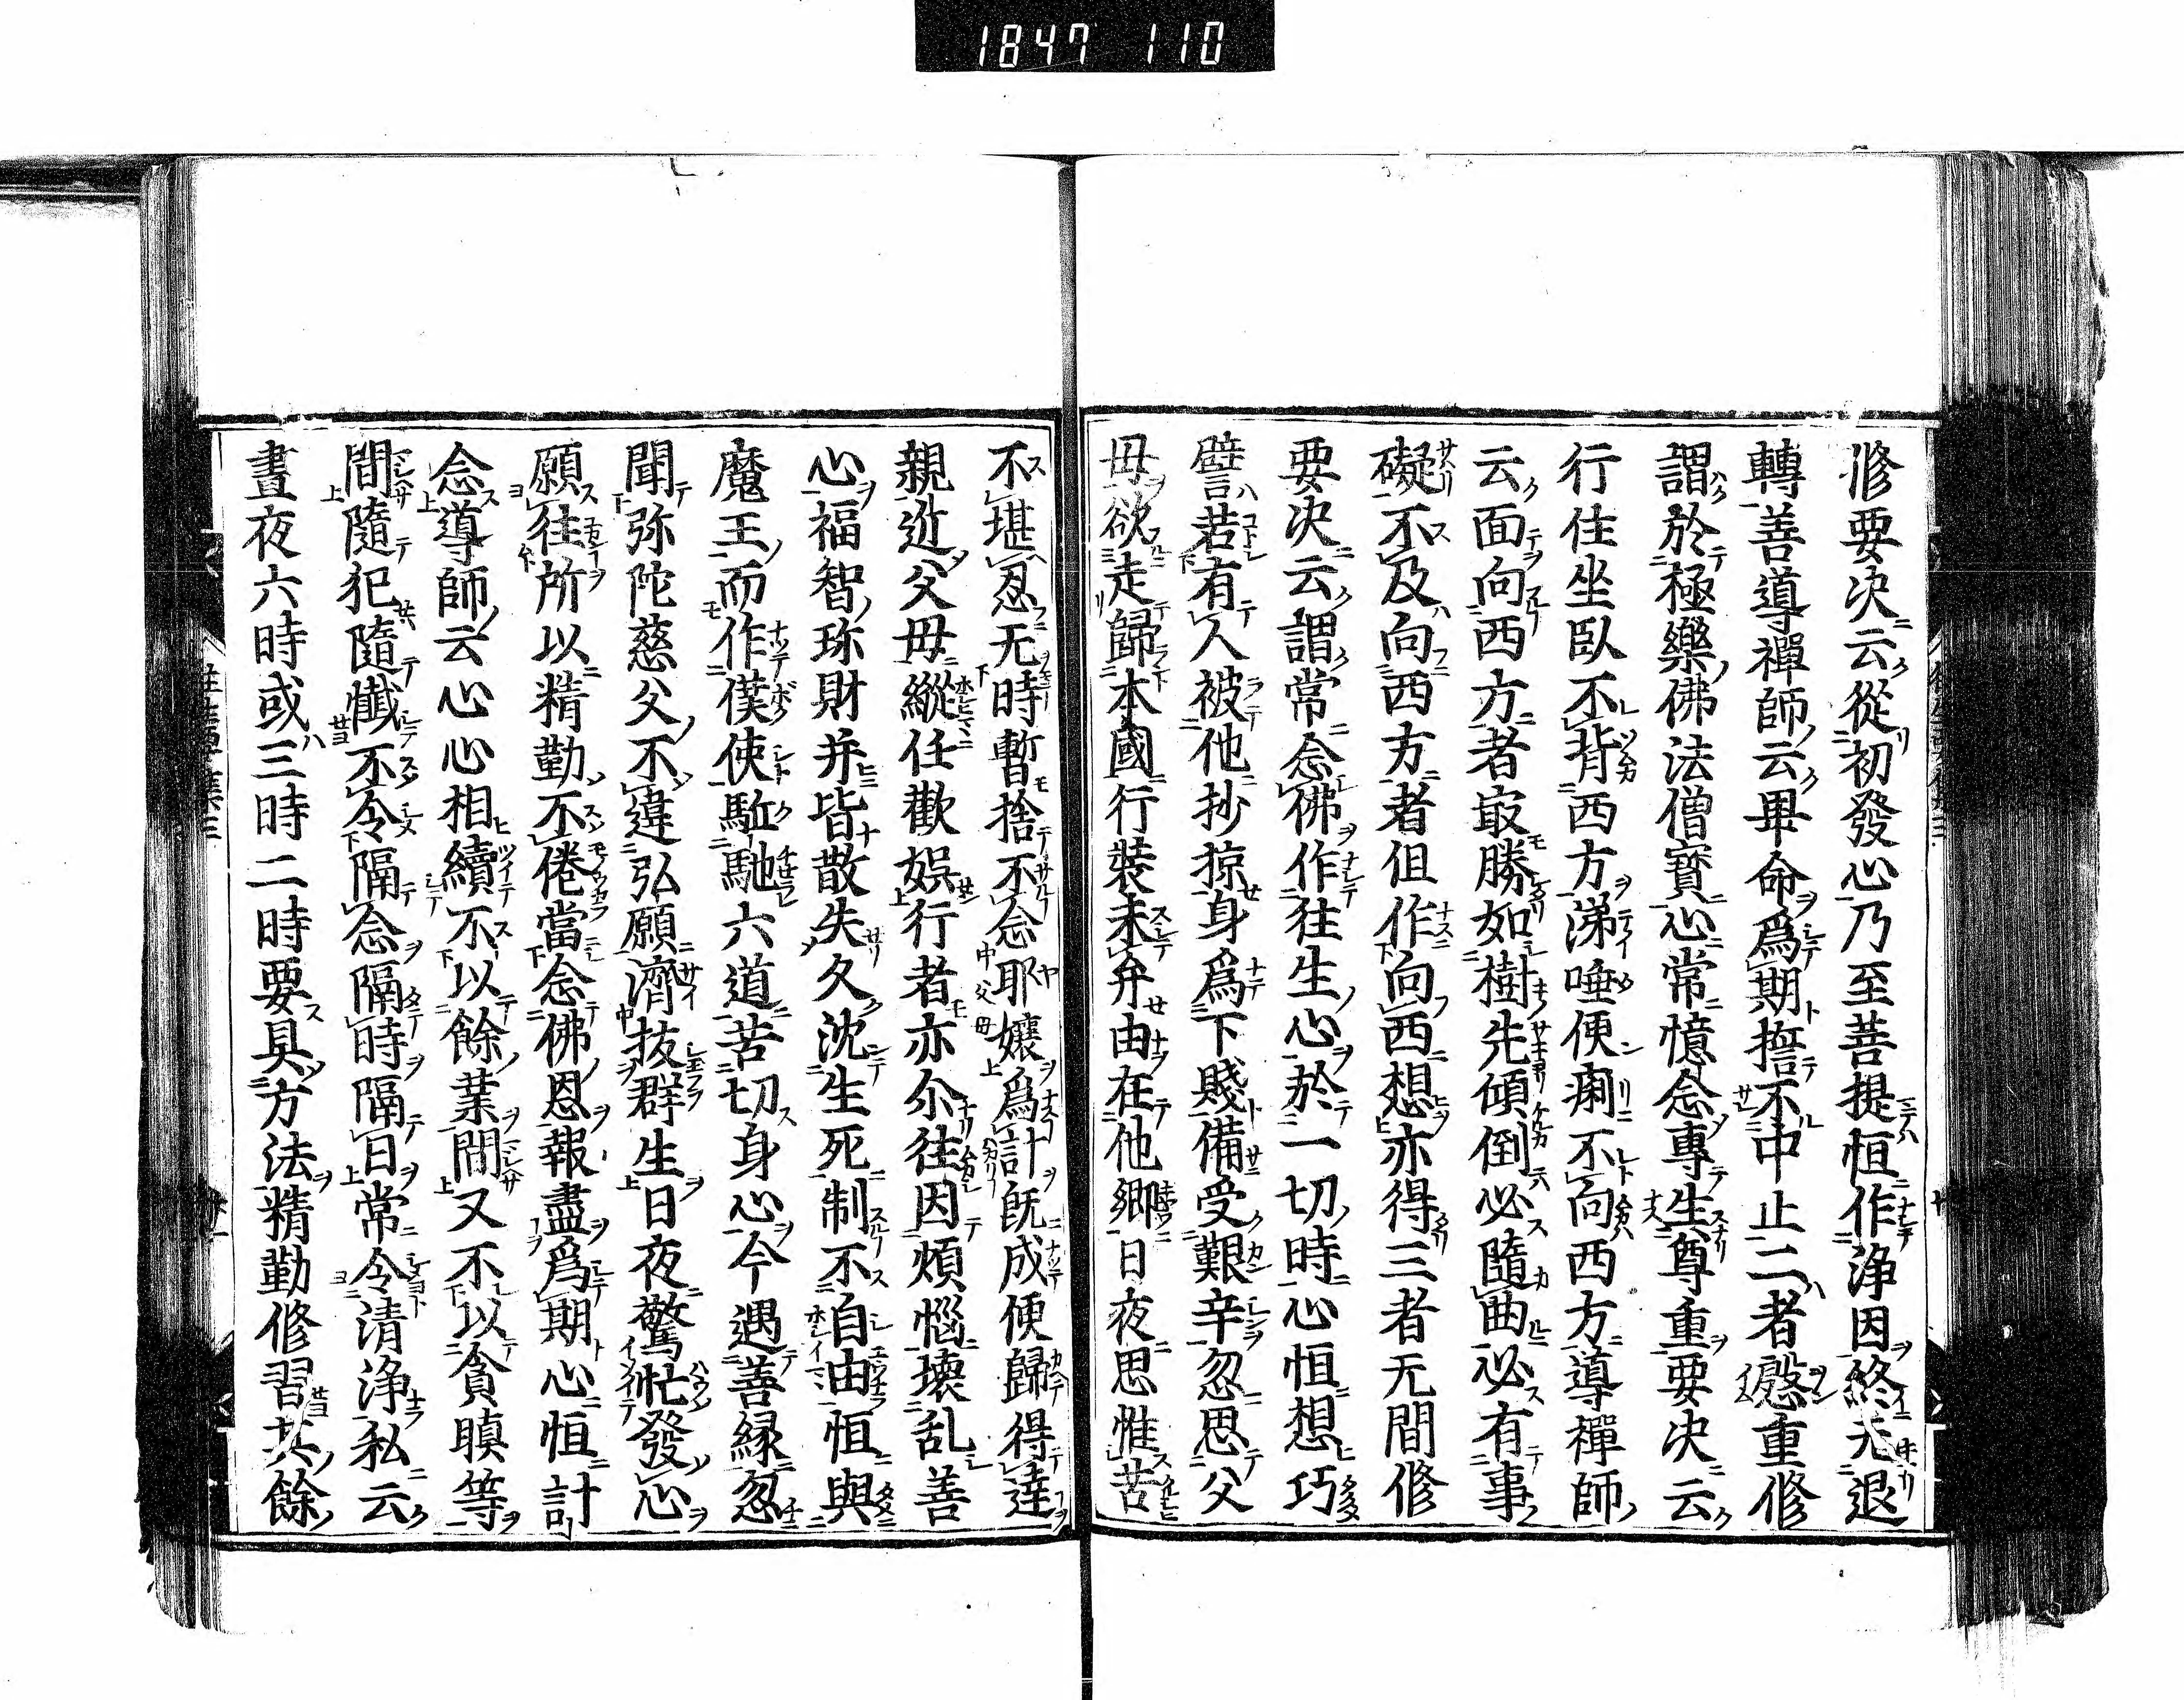 1847 110
修要決云從初發心乃至菩提恒作淨因終无退
轉善導禪師云畢命爲期誓不中止二者慇重修
謂於極樂佛法僧寶心常憶念專生尊重要決云
行住坐臥不背西方涕唾便痢不向西方導禪師
云面向西方者最勝如樹先傾倒必隨曲必有事
礙不及向西方者但作向西想亦得三者无間修
要決云謂常念佛作往生心於一切時心恒想巧
譬若有人被他抄掠身爲下賤備受艱辛忽思父
母欲走歸本國行裝未弁由在他鄉日夜思惟苦
不堪忍无時暫捨不念耶孃爲計既成便歸得達
親近父母縱任歡娯行者亦尒往因煩惱壞乱善
心福智珎財并皆散失久沈生死制不自由恒與
魔王而作僕使駈馳六道苦切身心今遇善緣忽
聞弥陀慈父不違弘願濟拔群生日夜驚忙發心
願往所以精勤不倦當念佛恩報盡爲期心恒計
念導師云心心相續不以餘業間又不以貪瞋等
間隨犯隨懺不令隔念隔時隔日常令清淨私云
晝夜六時或三時二時要具方法精勤修習其餘